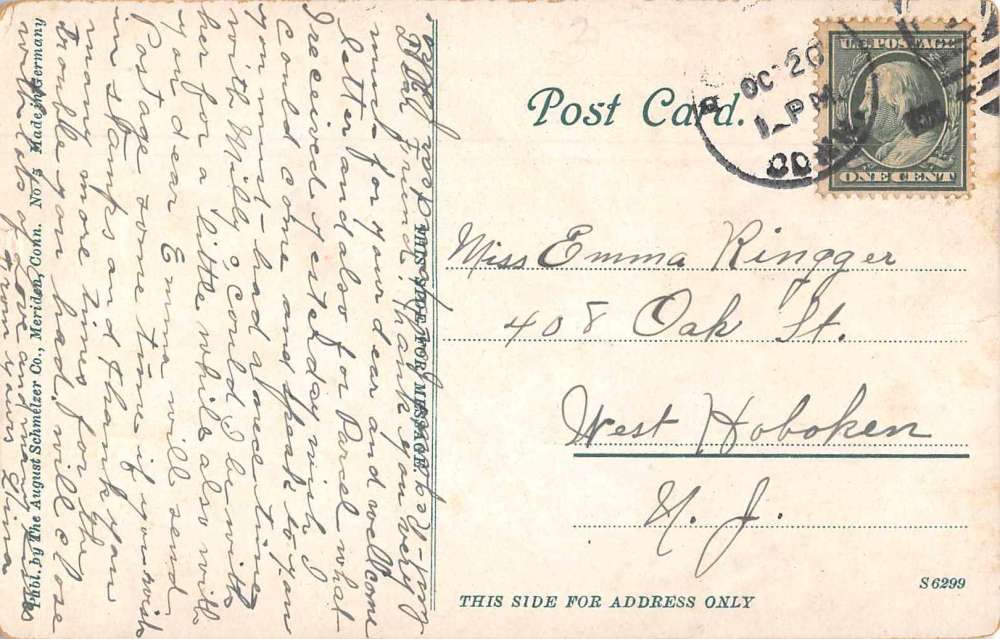 Post Card.
OC 26
1 - P M
CONN.
U.S. POSTAGE
ONE CENT
Miss Emma Ringger
408 Oak St.
West Hoboken
N. J.
THIS SIDE FOR ADDRESS ONLY
S 6299
THIS SIDE FOR MESSAGE
Dear Friend, Thank you very
much for your dear and wellcome
letter and also for Parcel what
I received yesterday wish I
could come and speak to you
you must had a nice time
with Milly, Could I be with
her for a little while also with
you dear Emma will send
Postage some time if you wish
in stamps and thank you
many more times for the
trouble you had, will close
with lots of Love and many kisses
from yours Elma
Publ. by The August Schmelzer Co., Meriden, Conn. No 5 Made in Germany